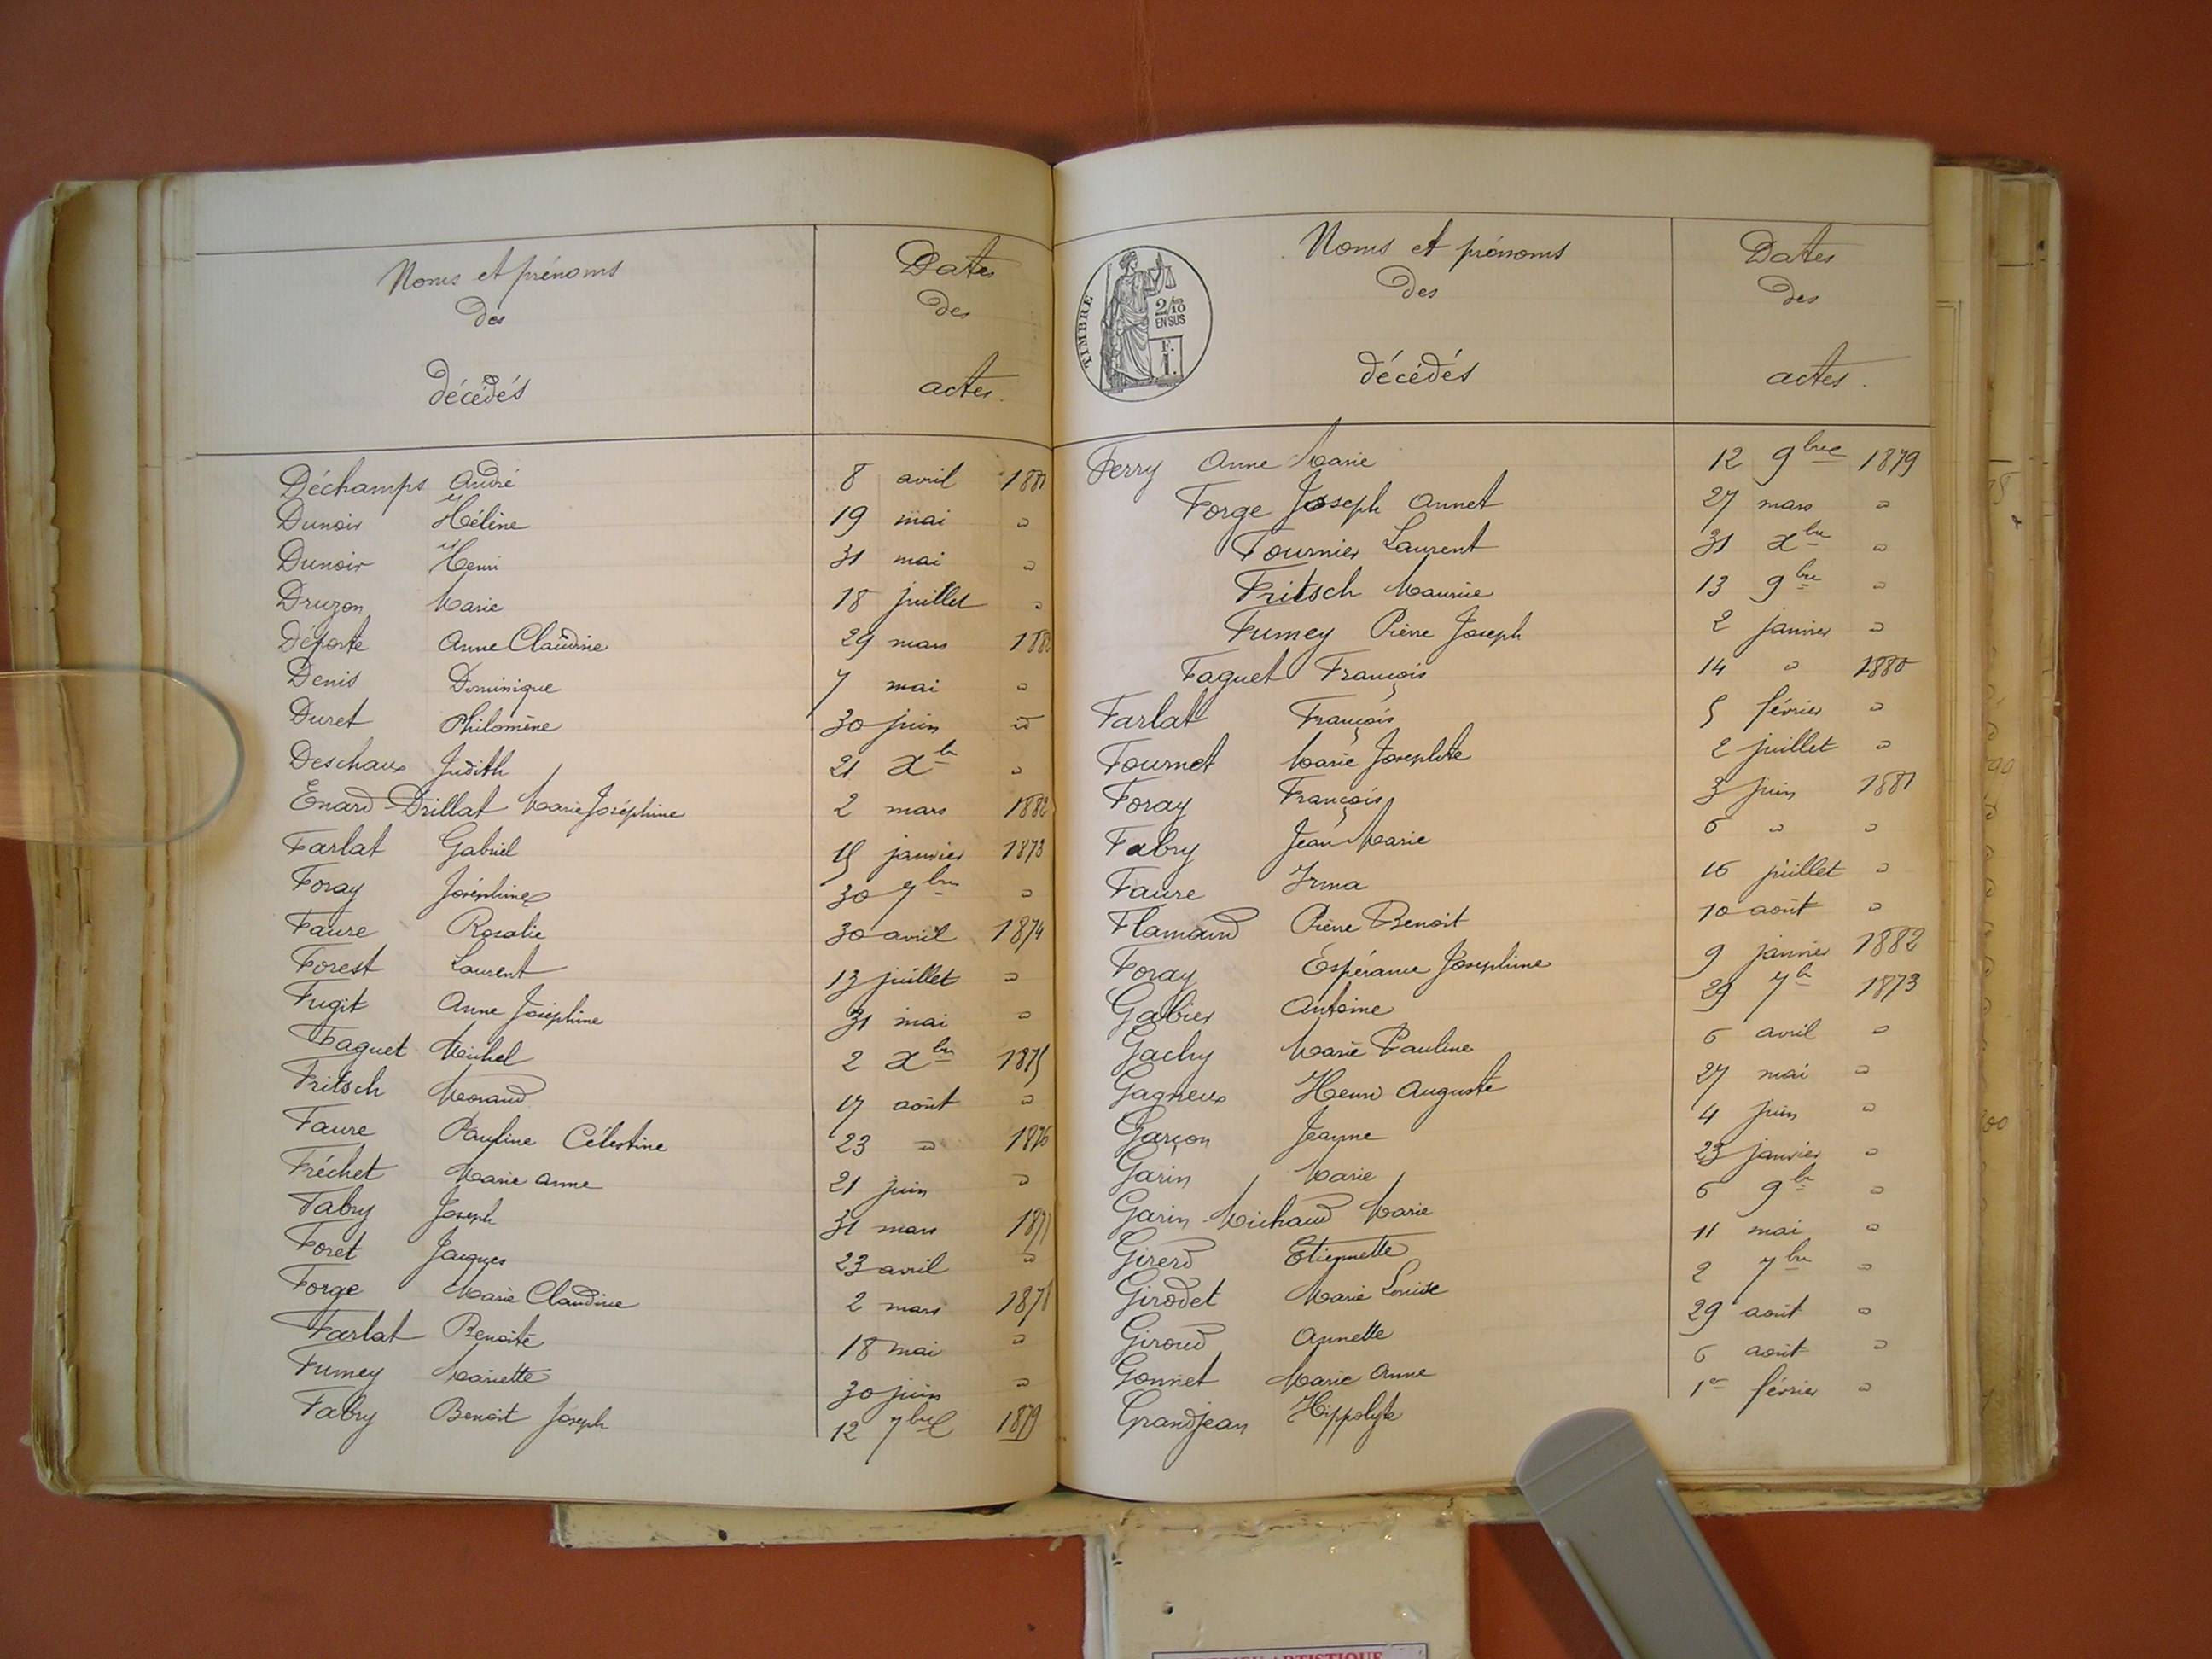 Noms et prénoms
des
décédés
Dates
des
actes.
Déchamps André 8 avril 1880
Dunoir Hélène 19 mai "
Dunoir Henri 31 mai "
Druzon Marie 18 juillet "
Déporte Anne Claudine 29 mars 188
Denis Dominique 7 mai "
Duret Philomène 30 juin "
Deschaux Judith 21 Xbr "
Enard-Drillat Marie Joséphine 2 mars 1882
Farlat Gabriel 15 janvier 1873
Foray Joséphine 30 7bre "
Faure Rosalie 30 avril 1874
Forest Laurent 13 juillet "
Fugit Anne Joséphine 31 mai "
Faguet Michel 2 Xbre 1875
Fritsch Morand 17 août "
Faure Pauline Célestine 23 " 1876
Fréchet Marie Anne 21 juin "
Fabry Joseph 31 mars 1877
Foret Jacques 23 avril "
Forge Marie Claudine 2 mars 1878
Farlat Benoîte 18 mai "
Fumey Mariette 30 juin "
Fabry Benoit Joseph 12 7bre 1879
TIMBRE
2/10
EN SUS
F.
1.
Noms et prénoms
des
décédés
Dates
des
actes.
Ferry Anne Marie 12 9bre 1879
Forge Joseph Annet 27 mars "
Fournier Laurent 31 Xbre "
Fritsch Maurice 13 9bre "
Fumey Pierre Joseph 2 janvier "
Faguet François 14 " 1880
Farlat François 5 février "
Fournet Marie Josephte 2 juillet "
Foray François 3 juin 1881
Fabry Jean Marie 6 " "
Faure Irma 16 juillet "
Flamand Pierre Benoit 10 août "
Foray Espérance Josephine 9 janvier 1882
Gabier Antoine 29 7br 1873
Gachy Marie Pauline 6 avril "
Gagneux Henri Auguste 27 mai "
Garçon Jeanne 4 juin "
Garin Marie 23 janvier "
Garin-Michaud Marie 6 9br "
Girerd Etiennette 11 mai "
Girodet Marie Louise 2 7bre "
Giroud Annette 29 août "
Gonnet Marie Anne 6 août "
Grandjean Hippolyte 1er février "